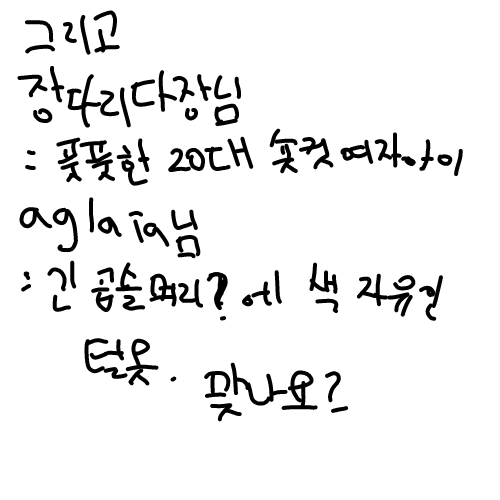 그리고
장다리다장님
: 풋풋한 20대 숏컷 여자아이
aglaia님
: 긴 곱슬머리?에 색 자유인
털옷. 맞나요?